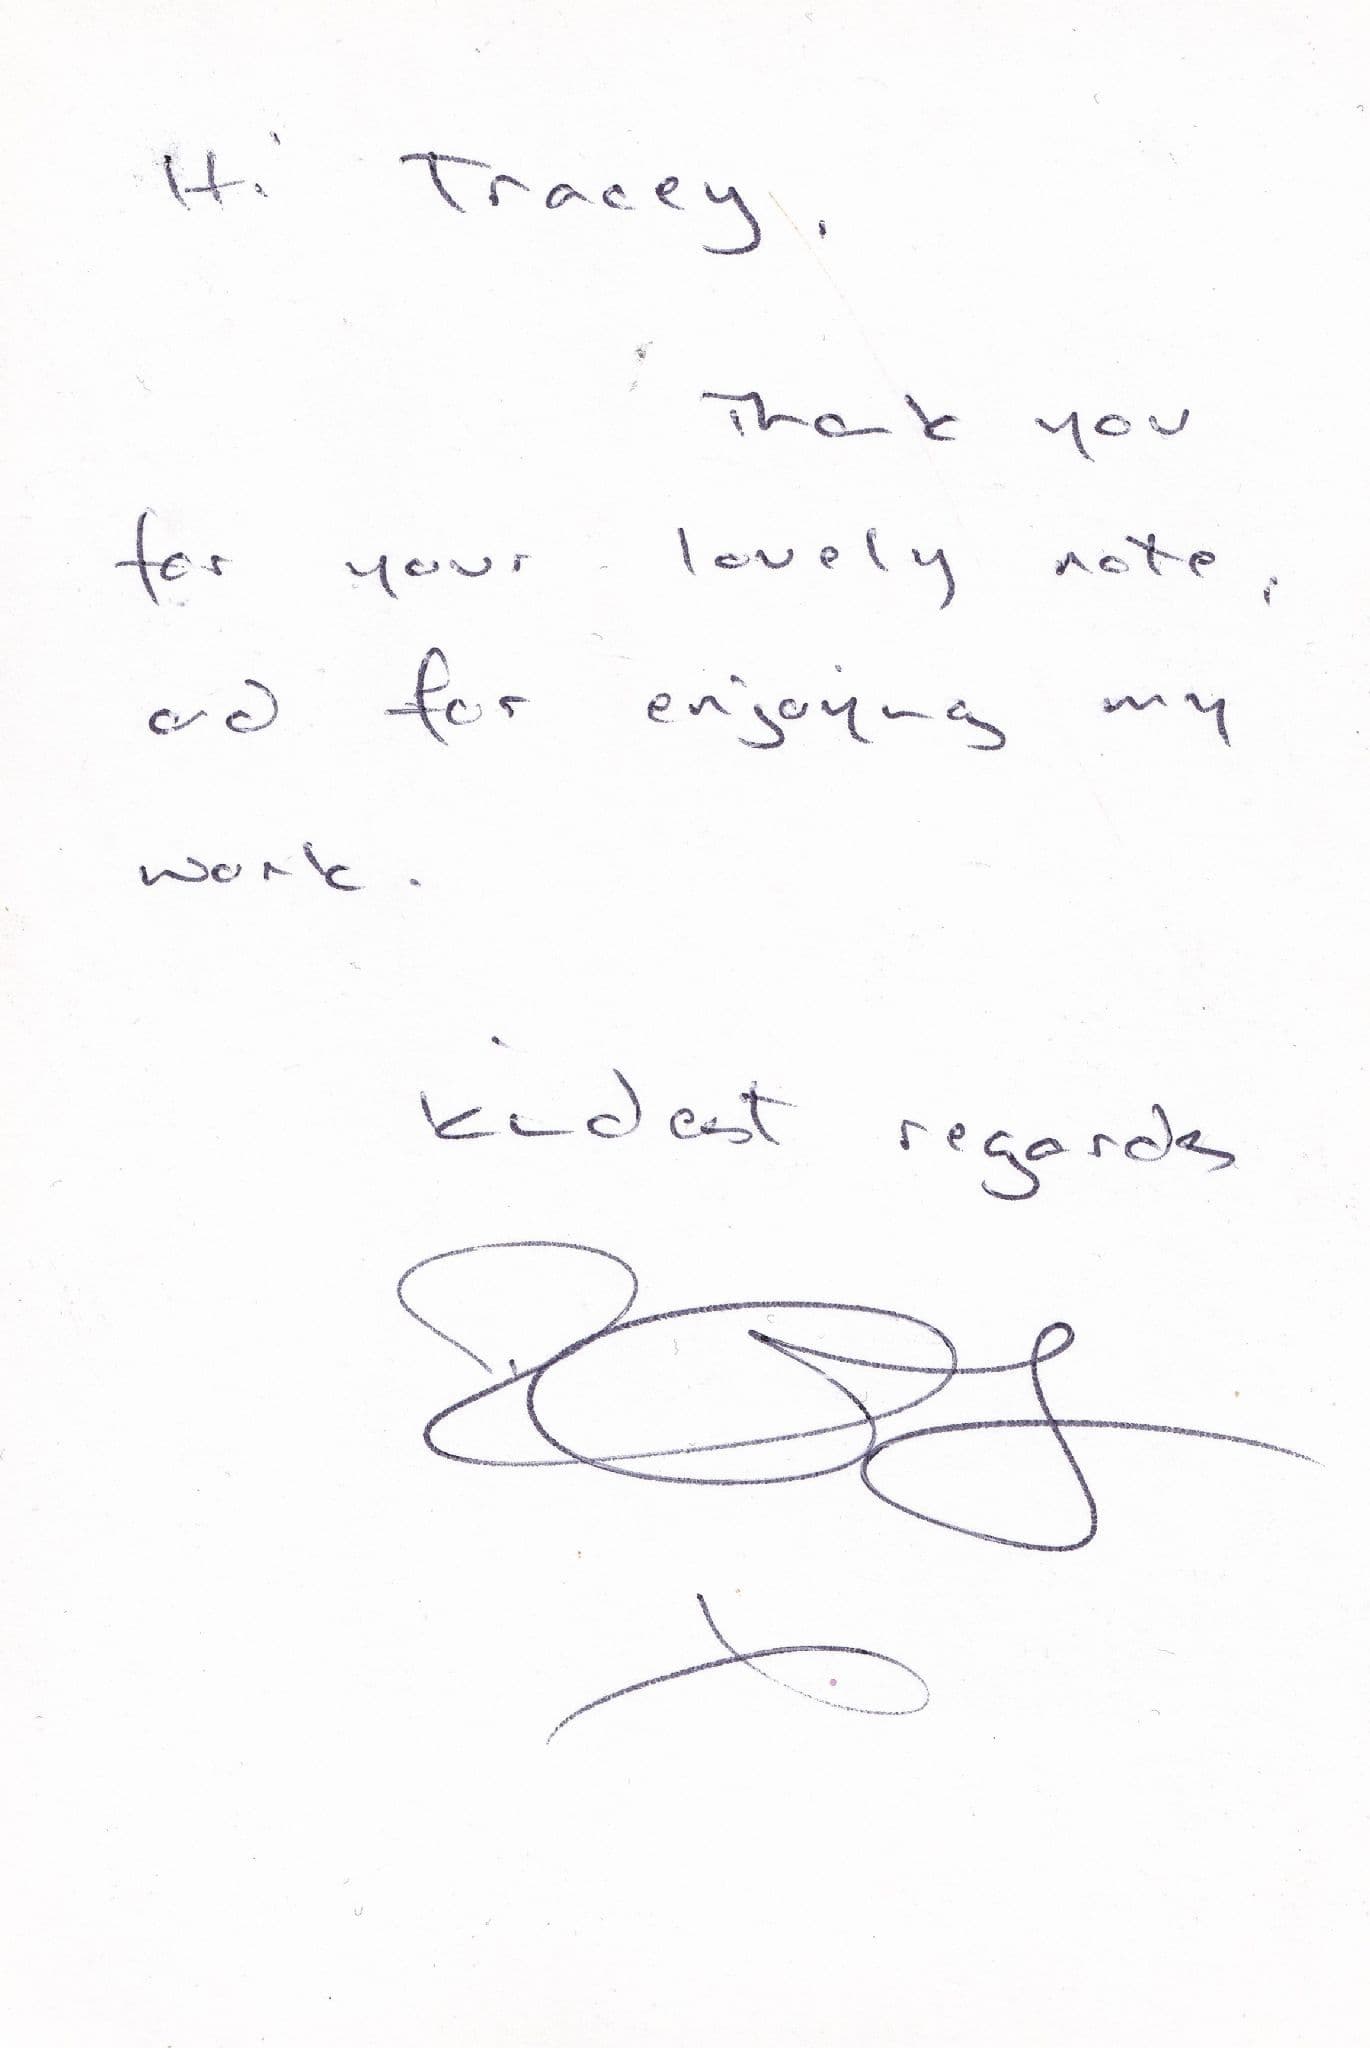 Hi Tracey,
Thank you
for your lovely note,
and for enjoying my
work.
kindest regards
x